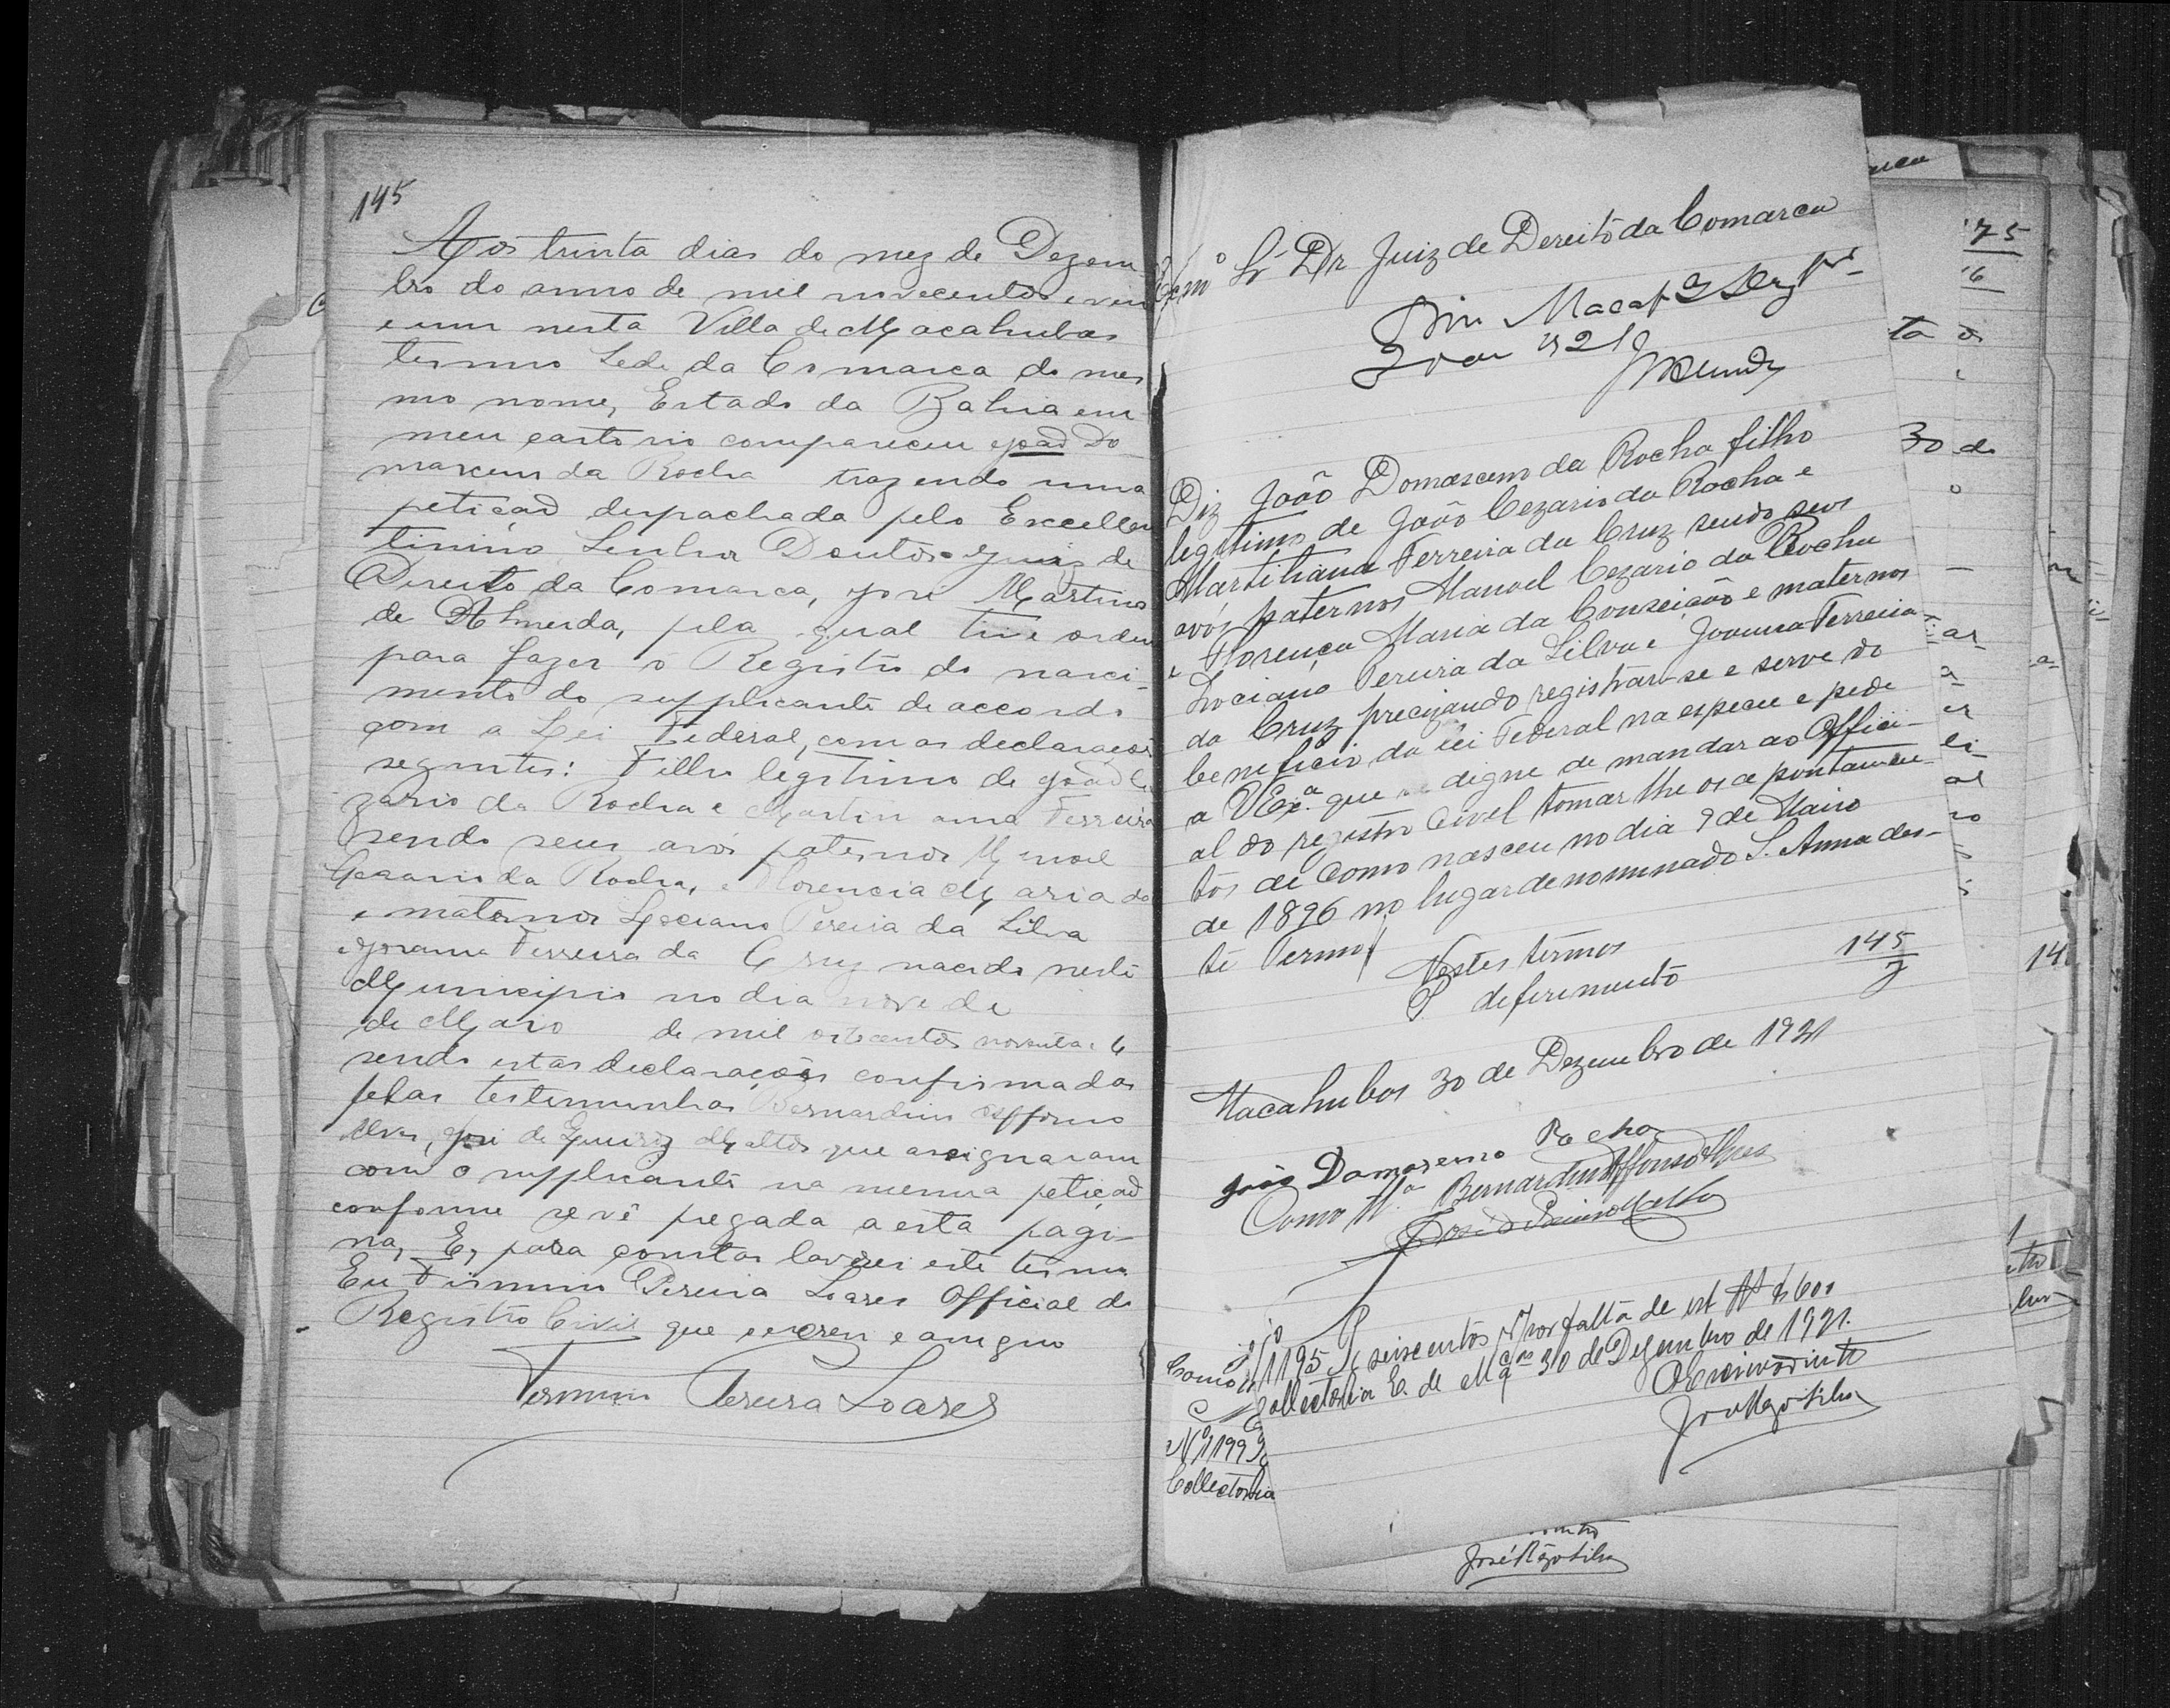 145
Aos trinta dias do mez de Dezem
bro do anno de mil novecentos e vin
e um nesta Villa de Macahubas
termo Sede da Comarca do mes
mo nome, Estado da Bahia em
meu cartorio compareceu João Do
mascens da Rocha trazendo uma
petiçaõ despachada pelo Excellen
tissimo Senhor Doutor Juiz de
Direito da Comarca, José Martins
de Almeida, pela qual tive ordem
para fazer o Registro do nasci-
mento do supplicante de accordo
com a Lei Federal, com as declarações
seguntes: Filho legitimo de João Ce
zario da Rocha e Martiniana Ferreira
sendo seus avós paternos Manoel
Cezario da Rocha, e Florencia Maria da
e maternos Lociano Pereira da Silva
e Joanna Ferreira da Cruz nacido neste
Municipio no dia nove de
de Maio de mil oitocentos noventa e 6
sendo estas declarações confirmadas
pelas testemunhas Bernardino Affonso
Alves, José de Queiroz Mattos que assignaram
com o supplicante na mesma petiçaõ
conforme se vê pregada a esta pagi-
na, E, para constar lavrei este termo
Eu Firmino Pereira Soares Official do
Registro Civil que escrevi e assigno
Firmino Pereira Soares
Exmo Sr Dr Juiz de Dereito da Comarca
Sim Macas 3 Dezbro
30 de 1921
Diz João Domasceno da Rocha filho
legitimo de João Cezario da Rocha e
Martiliana Ferreira da Cruz sendo seos
avós paternos Manoel Cezario da Rocha
e Florença Maria da Conseição e maternos
Lociano Pereira da Silva e Joanna Ferreira
da Cruz precizando registrar-se e serve do
beneficio da lei Federal na especie e pede
a V Exa. que se digne de mandar ao Offici-
al do registro Civel tomar lhe os apontamen-
tos de como nasceu no dia 9 de Maio
de 1896 no lugar denominado S. Anna des-
te Termo
Nestes termos
P deferimento
145
Macahubas 30 de Dezembro de 1921
João Domaseno Rocha
Como Ta Bernardino Affonso Alves
José de Queiroz Mattos
No 1195 seiscentos por falta de est. 600
Collectoria E. de Mcas 30 de Dezembro de 1921.
O Escrivão
José Rego Silva
No 1199
Collectoria
José Rego Silva
30 de
75
16
14